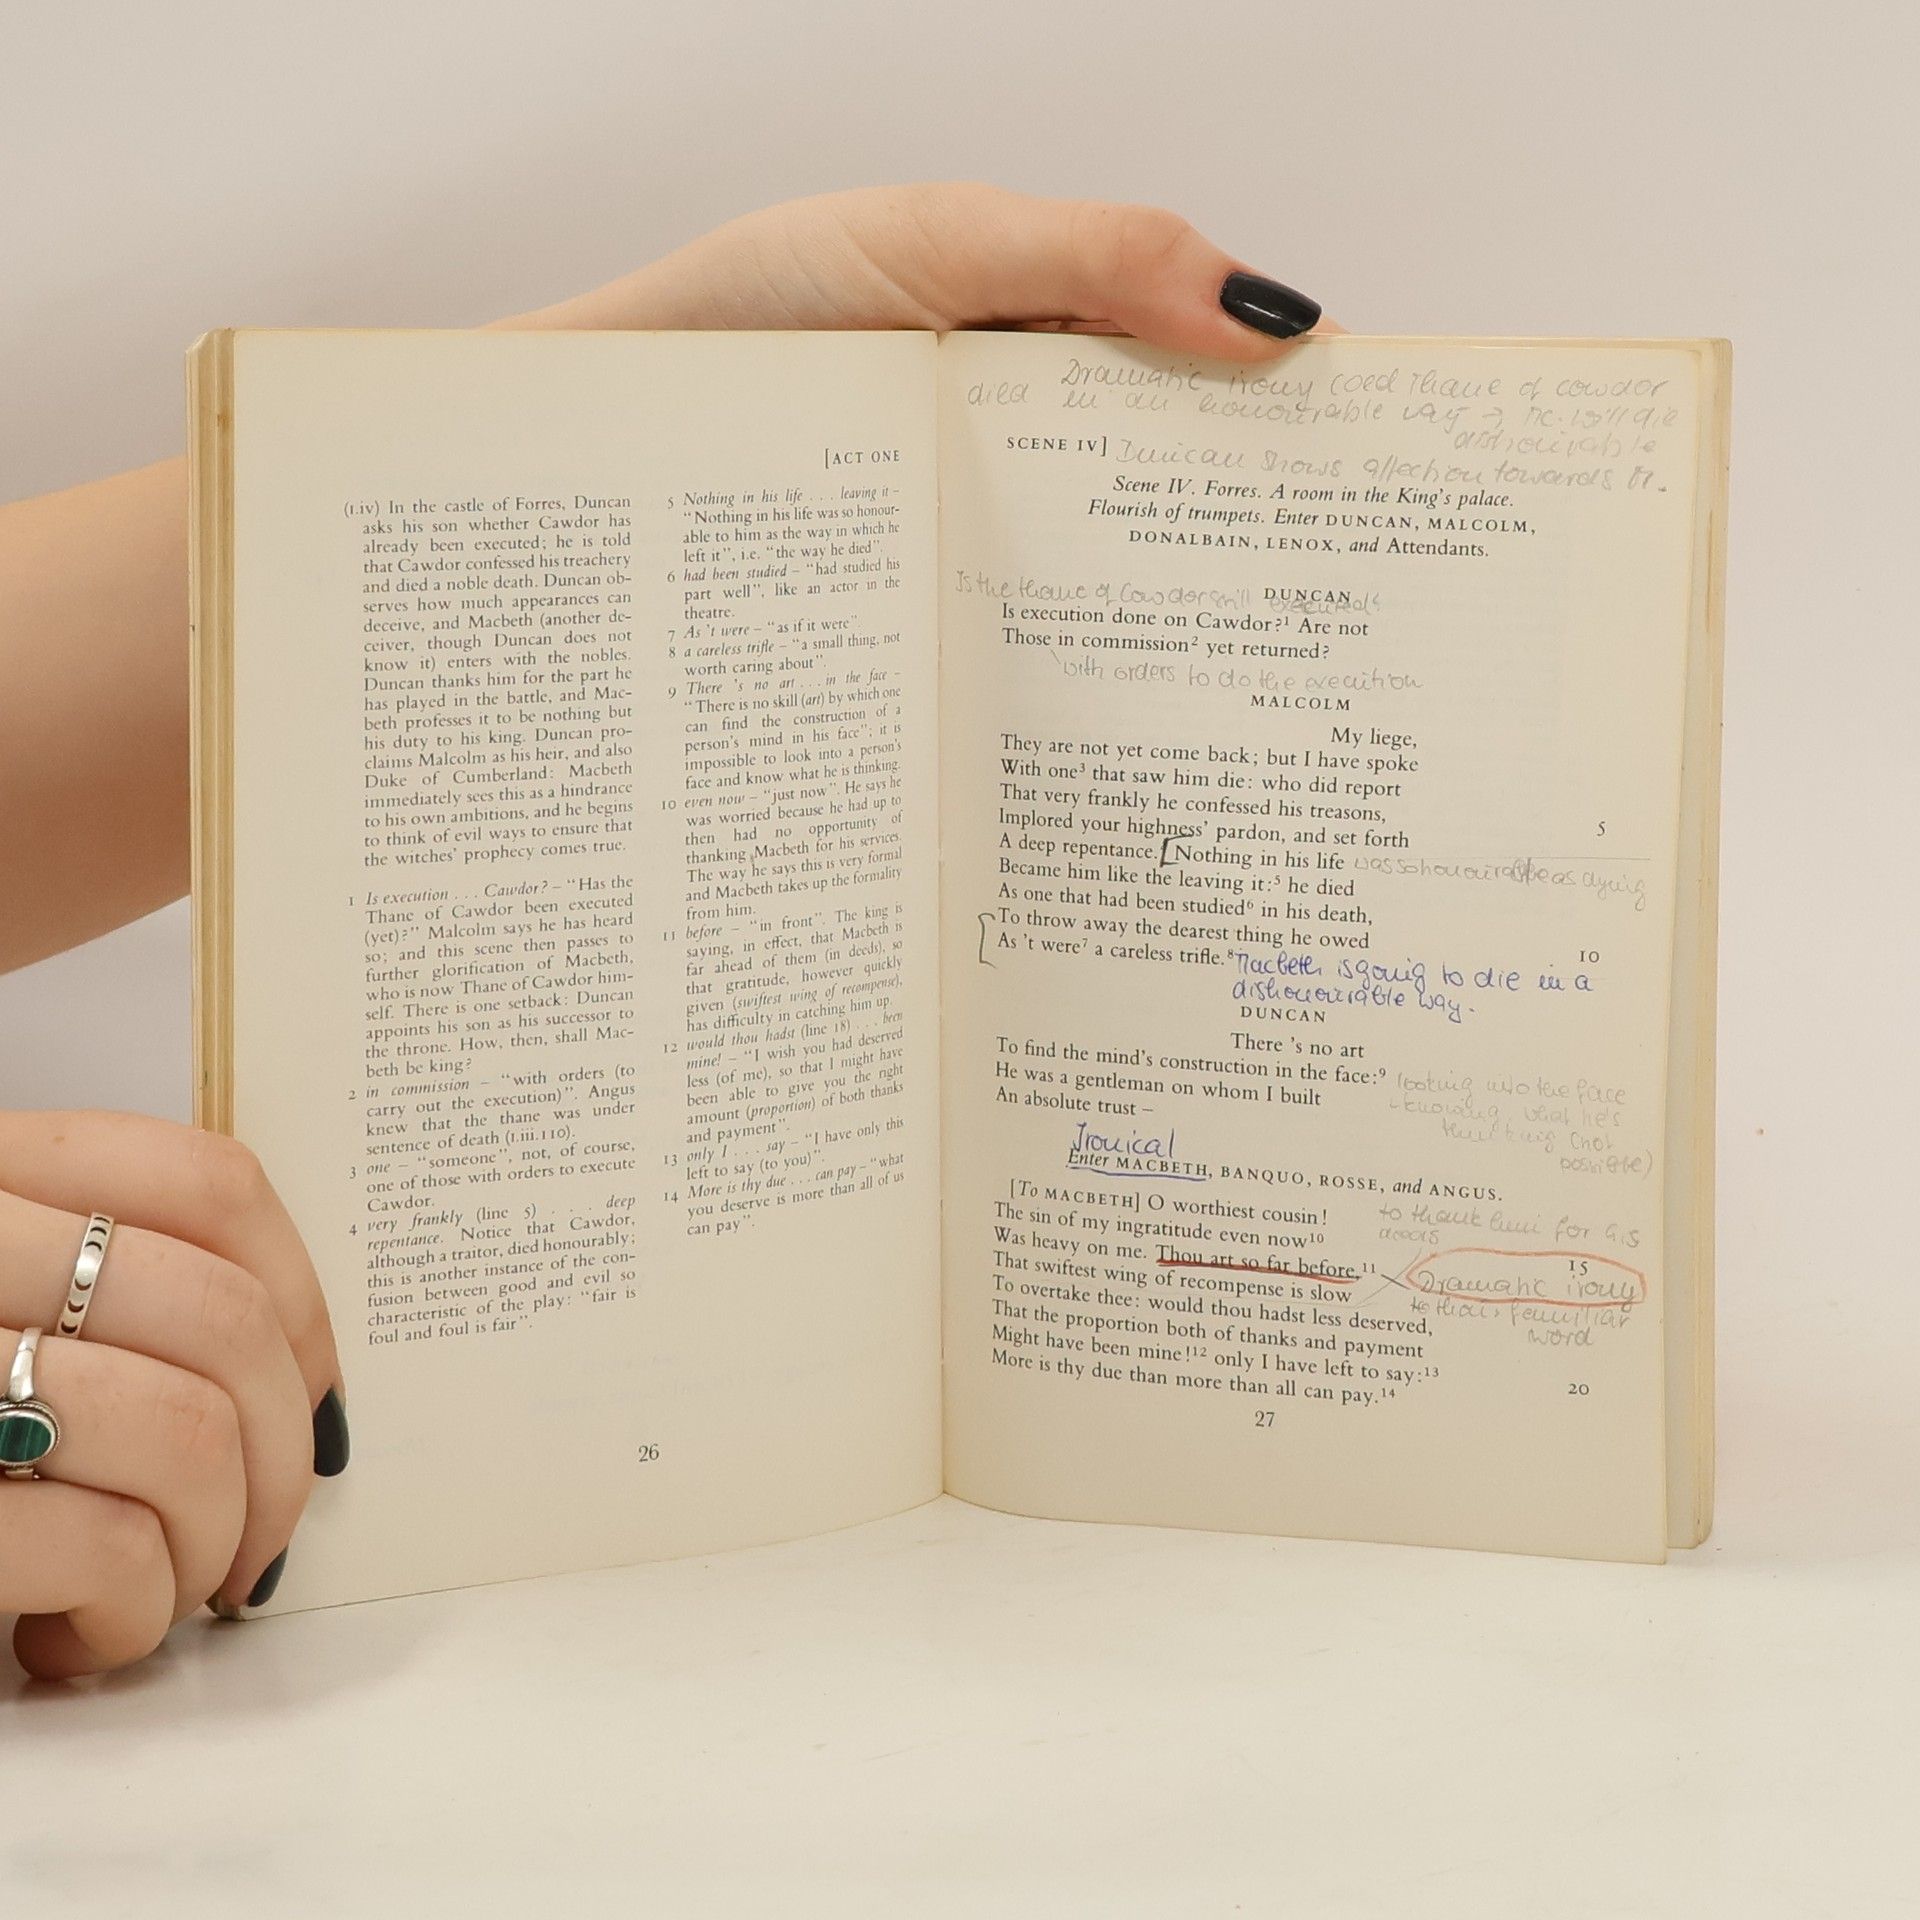 [ACT ONE
(I.iv) In the castle of Forres, Duncan
asks his son whether Cawdor has
already been executed; he is told
that Cawdor confessed his treachery
and died a noble death. Duncan ob-
serves how much appearances can
deceive, and Macbeth (another de-
ceiver, though Duncan does not
know it) enters with the nobles.
Duncan thanks him for the part he
has played in the battle, and Mac-
beth professes it to be nothing but
his duty to his king. Duncan pro-
claims Malcolm as his heir, and also
Duke of Cumberland: Macbeth
immediately sees this as a hindrance
to his own ambitions, and he begins
to think of evil ways to ensure that
the witches' prophecy comes true.
1 Is execution . . . Cawdor? – "Has the
Thane of Cawdor been executed
(yet)?" Malcolm says he has heard
so; and this scene then passes to
further glorification of Macbeth,
who is now Thane of Cawdor him-
self. There is one setback: Duncan
appoints his son as his successor to
the throne. How, then, shall Mac-
beth be king?
2 in commission – "with orders (to
carry out the execution)". Angus
knew that the thane was under
sentence of death (I.iii.110).
3 one – "someone", not, of course,
one of those with orders to execute
Cawdor.
4 very frankly (line 5) . . . deep
repentance. Notice that Cawdor,
although a traitor, died honourably;
this is another instance of the con-
fusion between good and evil so
characteristic of the play: "fair is
foul and foul is fair".
5 Nothing in his life . . . leaving it –
"Nothing in his life was so honour-
able to him as the way in which he
left it", i.e. "the way he died".
6 had been studied – "had studied his
part well", like an actor in the
theatre.
7 As 't were – "as if it were".
8 a careless trifle – "a small thing, not
worth caring about".
9 There 's no art . . . in the face –
"There is no skill (art) by which one
can find the construction of a
person's mind in his face"; it is
impossible to look into a person's
face and know what he is thinking.
10 even now – "just now". He says he
was worried because he had up to
then had no opportunity of
thanking Macbeth for his services.
The way he says this is very formal
and Macbeth takes up the formality
from him.
11 before – "in front". The king is
saying, in effect, that Macbeth is
far ahead of them (in deeds), so
that gratitude, however quickly
given (swiftest wing of recompense),
has difficulty in catching him up.
12 would thou hadst (line 18) . . . been
mine! – "I wish you had deserved
less (of me), so that I might have
been able to give you the right
amount (proportion) of both thanks
and payment".
13 only I . . . say – "I have only this
left to say (to you)".
14 More is thy due . . . can pay – "what
you deserve is more than all of us
can pay".
26
Dramatic irony Thane of Cowdor
died in an honourable way → Mc. will die
dishonourable
SCENE IV] Duncan shows affection towards M.
Scene IV. Forres. A room in the King's palace.
Flourish of trumpets. Enter DUNCAN, MALCOLM,
DONALBAIN, LENOX, and Attendants.
Is the thane of Cowdor still executed?
DUNCAN
Is execution done on Cawdor?¹ Are not
Those in commission² yet returned?
with orders to do the execution
MALCOLM
My liege,
They are not yet come back; but I have spoke
With one³ that saw him die: who did report
That very frankly he confessed his treasons,
Implored your highness' pardon, and set forth 5
A deep repentance.⁴ [Nothing in his life was so honourable as dying
Became him like the leaving it:⁵ he died
As one that had been studied⁶ in his death,
To throw away the dearest thing he owed
As 't were⁷ a careless trifle.⁸ 10
Macbeth is going to die in a
dishonourable way.
DUNCAN
There 's no art
To find the mind's construction in the face:⁹
He was a gentleman on whom I built
An absolute trust –
looking into the face
knowing, what he's
thinking (not
possible)
Ironical
Enter MACBETH, BANQUO, ROSSE, and ANGUS.
[To MACBETH] O worthiest cousin!
The sin of my ingratitude even now¹⁰
to thank him for his
deeds
Was heavy on me. Thou art so far before,¹¹ 15
Dramatic irony
That swiftest wing of recompense is slow
familiar
word
To overtake thee: would thou hadst less deserved,
That the proportion both of thanks and payment
Might have been mine!¹² only I have left to say:¹³
More is thy due than more than all can pay.¹⁴ 20
27